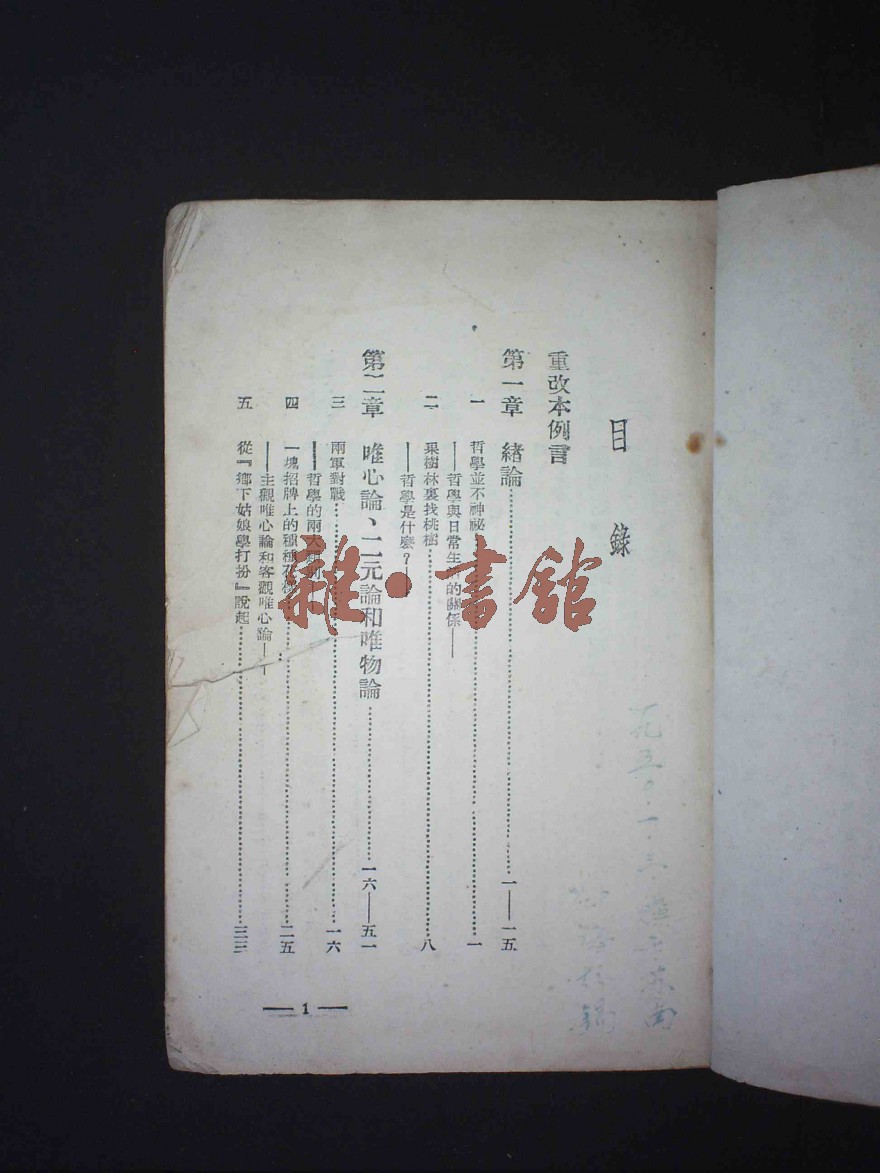 目錄
重改本例言
第一章 緒論……一——一五
一 哲學並不神秘……一
——哲學與日常生活的關係——
二 果樹林裏找桃樹……八
——哲學是什麼?
第二章 唯心論、二元論和唯物論……一六——五一
三 兩軍對戰……一六
——哲學的兩大類別
四 一塊招牌上的種種花樣……二五
——主觀唯心論和客觀唯心論——
五 從『鄉下姑娘學打扮』說起……三三
— 1 —
雜·書館
一九五〇·一·三